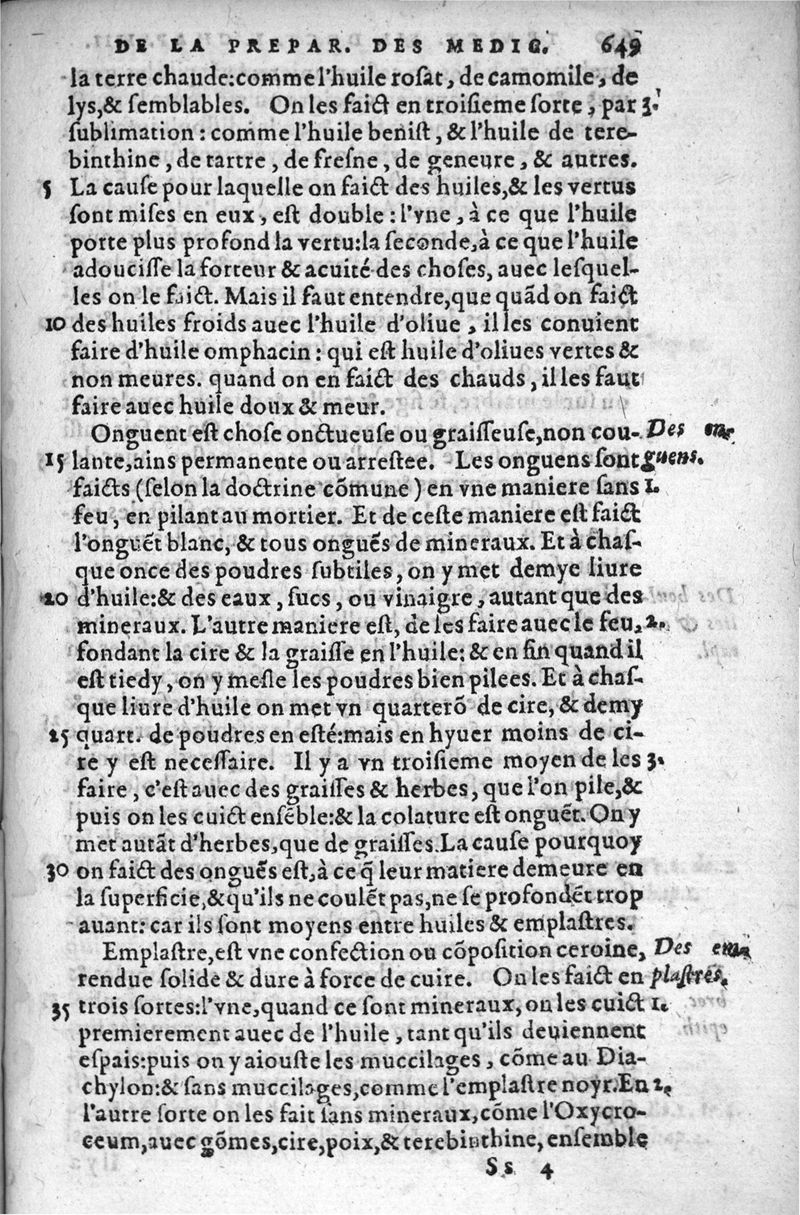 DE LA PREPAR. DES MEDIC. 649
la terre chaude:comme l'huile rosat, de camomile, de
lys,& semblables. On les faict en troisieme sorte, par 3.
sublimation : comme l'huile benist, & l'huile de tere-
binthine, de tartre, de fresne, de geneure, & autres.
5 La cause pour laquelle on faict des huiles,& les vertus
sont mises en eux, est double : l'vne, à ce que l'huile
porte plus profond la vertu:la seconde,à ce que l'huile
adoucisse la forteur & acuité des choses, auec lesquel-
les on le faict. Mais il faut entendre,que quãd on faict
10 des huiles froids auec l'huile d'oliue, il les conuient
faire d'huile omphacin : qui est huile d'oliues vertes &
non meures. quand on en faict des chauds, il les faut
faire auec huile doux & meur.
Onguent est chose onctueuse ou graisseuse,non cou- Des on-
15 lante,ains permanente ou arrestee. Les onguens sont guens.
faicts (selon la doctrine cõmune) en vne maniere sans 1.
feu, en pilant au mortier. Et de ceste maniere est faict
l'onguẽt blanc, & tous onguẽs de mineraux. Et à chas-
que once des poudres subtiles, on y met demye liure
20 d'huile:& des eaux, sucs, ou vinaigre, autant que des
mineraux. L'autre maniere est, de les faire auec le feu, 2.
fondant la cire & la graisse en l'huile: & en fin quand il
est tiedy, on y mesle les poudres bien pilees. Et à chas-
que liure d'huile on met vn quarterõ de cire, & demy
25 quart. de poudres en esté:mais en hyuer moins de ci-
re y est necessaire. Il y a vn troisieme moyen de les 3.
faire, c'est auec des graisses & herbes, que l'on pile,&
puis on les cuict ensẽble:& la colature est onguẽt. On y
met autãt d'herbes,que de graisses.La cause pourquoy
30 on faict des onguẽs est,à ce q̃ leur matiere demeure en
la superficie,& qu'ils ne coulẽt pas,ne se profondẽt trop
auant: car ils sont moyens entre huiles & emplastres.
Emplastre,est vne confection ou cõposition ceroine, Des em-
rendue solide & dure à force de cuire. On les faict en plastres.
35 trois sortes:l'vne,quand ce sont mineraux,on les cuict 1.
premierement auec de l'huile, tant qu'ils deuiennent
espais:puis on y aiouste les muccilages, cõme au Dia-
chylon:& sans muccilages,comme l'emplastre noyr.En 2.
l'autre sorte on les fait sans mineraux,cõme l'Oxycro-
ceum,auec gõmes,cire,poix,& terebinthine, ensemble
Ss 4